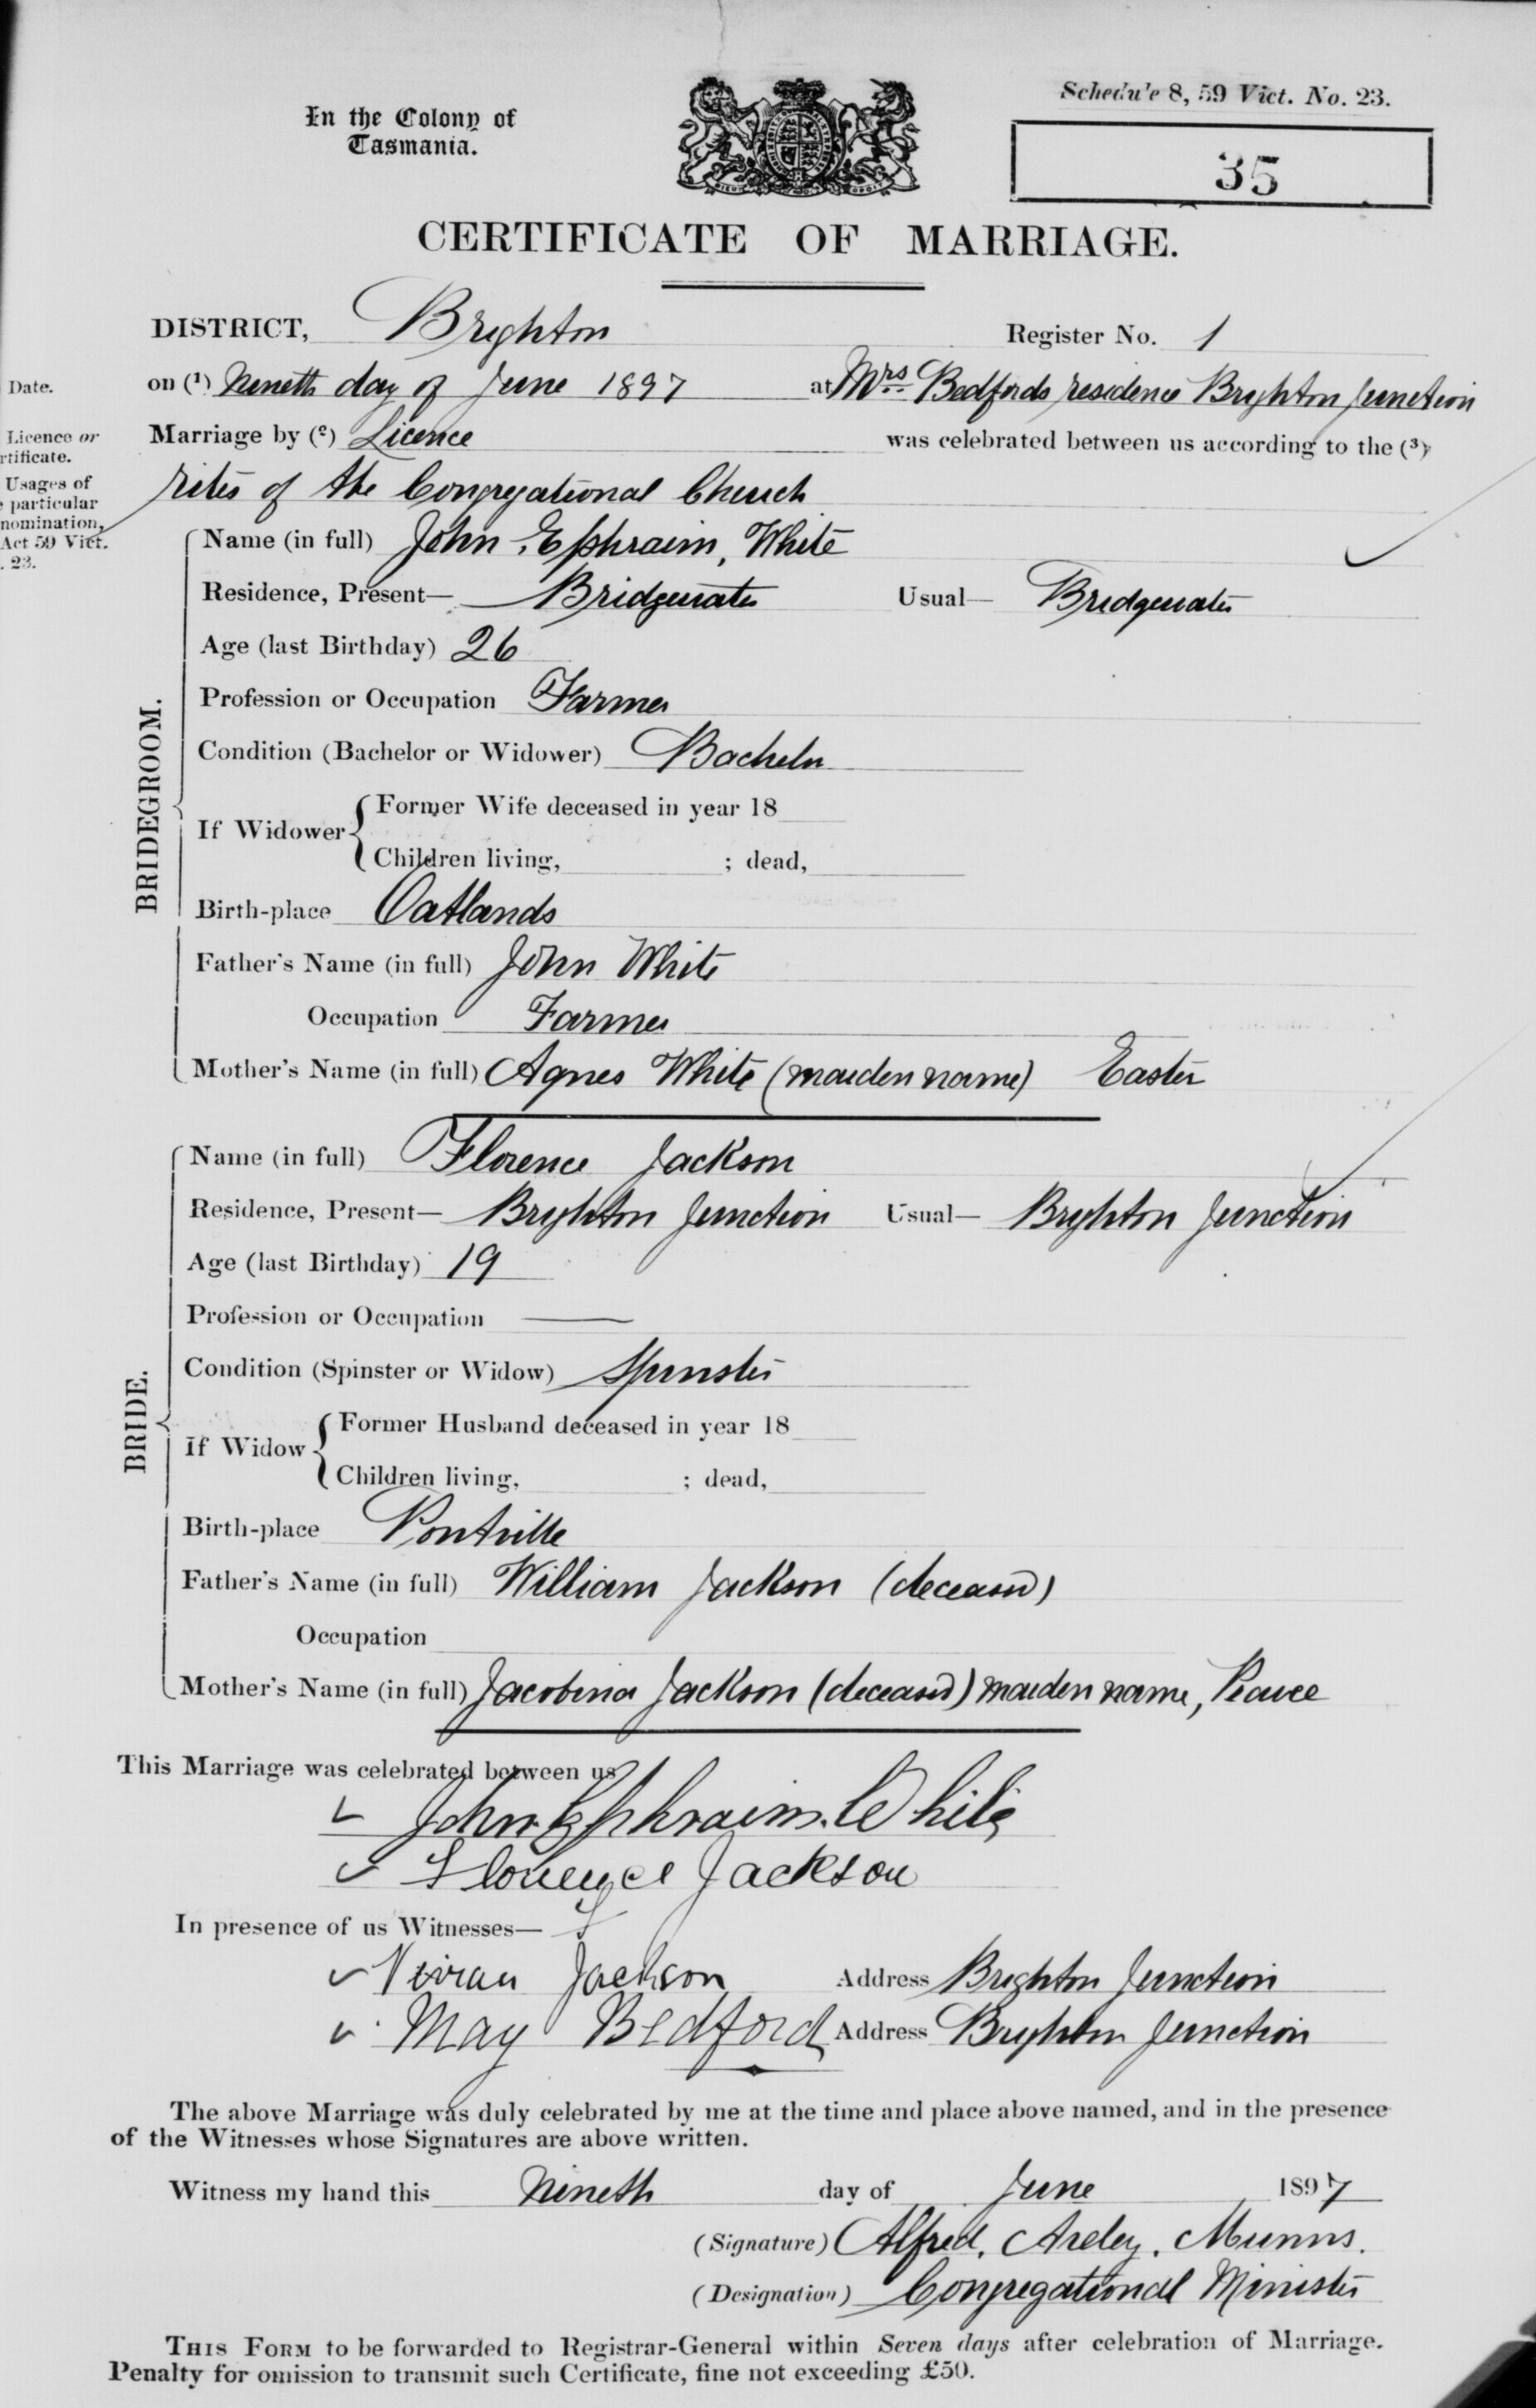 In the Colony of
Tasmania.
Schedule 8, 59 Vict. No. 23.
35
CERTIFICATE OF MARRIAGE.
DISTRICT, Brighton Register No. 1
Date. on (1) Nineth day of June 1897 at Mrs Bedfords residence Brighton Junction
Licence or
rtificate.
Marriage by (2) Licence was celebrated between us according to the (3)
Usages of
particular
nomination,
Act 59 Vict.
. 23.
rites of the Congregational Church
BRIDEGROOM.
Name (in full) John Ephraim, White
Residence, Present— Bridgewater Usual— Bridgewater
Age (last Birthday) 26
Profession or Occupation Farmer
Condition (Bachelor or Widower) Bachelor
If Widower Former Wife deceased in year 18
Children living, ; dead,
Birth-place Oatlands
Father's Name (in full) John White
Occupation Farmer
Mother's Name (in full) Agnes White (maiden name) Easter
BRIDE.
Name (in full) Florence Jackson
Residence, Present— Brighton Junction Usual— Brighton Junction
Age (last Birthday) 19
Profession or Occupation —
Condition (Spinster or Widow) Spinster
If Widow Former Husband deceased in year 18
Children living, ; dead,
Birth-place Pontville
Father's Name (in full) William Jackson (deceased)
Occupation
Mother's Name (in full) Jacobina Jackson (deceased) maiden name, Pearce
This Marriage was celebrated between us
John Ephraim. White
Florence Jackson
In presence of us Witnesses—
Vivian Jackson Address Brighton Junction
May Bedford Address Brighton Junction
The above Marriage was duly celebrated by me at the time and place above named, and in the presence
of the Witnesses whose Signatures are above written.
Witness my hand this Nineth day of June 1897
(Signature) Alfred. Areley. Munns.
(Designation) Congregational Minister
THIS FORM to be forwarded to Registrar-General within Seven days after celebration of Marriage.
Penalty for omission to transmit such Certificate, fine not exceeding £50.